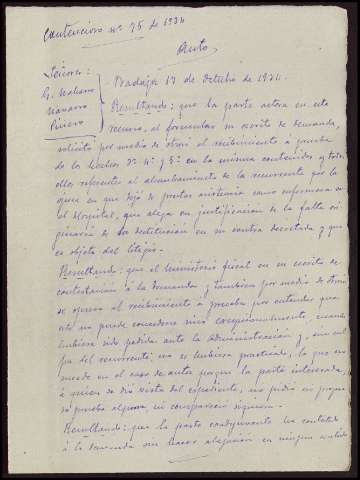 Contencioso nº 75 de 1934
Auto
Señores:
Badajoz 17 de Octubre de 1934.
Navarro
Piñero
Resultando: que la parte actora en este
recurso, al formular su escrito de demanda,
solicitó por medio de otrosí el recibimiento á prueba
de los hechos 3º 4º y 5º en la misma contenidos y todo
ello referente al alumbramiento de la recurrente por la
que en que dejó de prestar asistencia como enfermera en
el Hospital, que alega en justificación de la falta
de su destitución en su contra decretada y que
es objeto del litigio.
Resultando: que el Ministerio fiscal en su escrito de
contestación á la demanda y tambien por medio de otrosí
se opuso al recibimiento á prueba por entender que
este no puede concederse sino excepcionalmente, cuando
hubiera sido pedida ante la administración y, sin cul
pa del recurrente, no se hubiera practicado, lo que no
sucede en el caso de autos porque la parte interesada,
á quien se dió vista del expediente, no pidió ni propu
so prueba alguna, ni compareció siquiera.
Resultando: que la parte coadyuvante ha contestado
á la demanda sin hacer alegación en ningun sentido